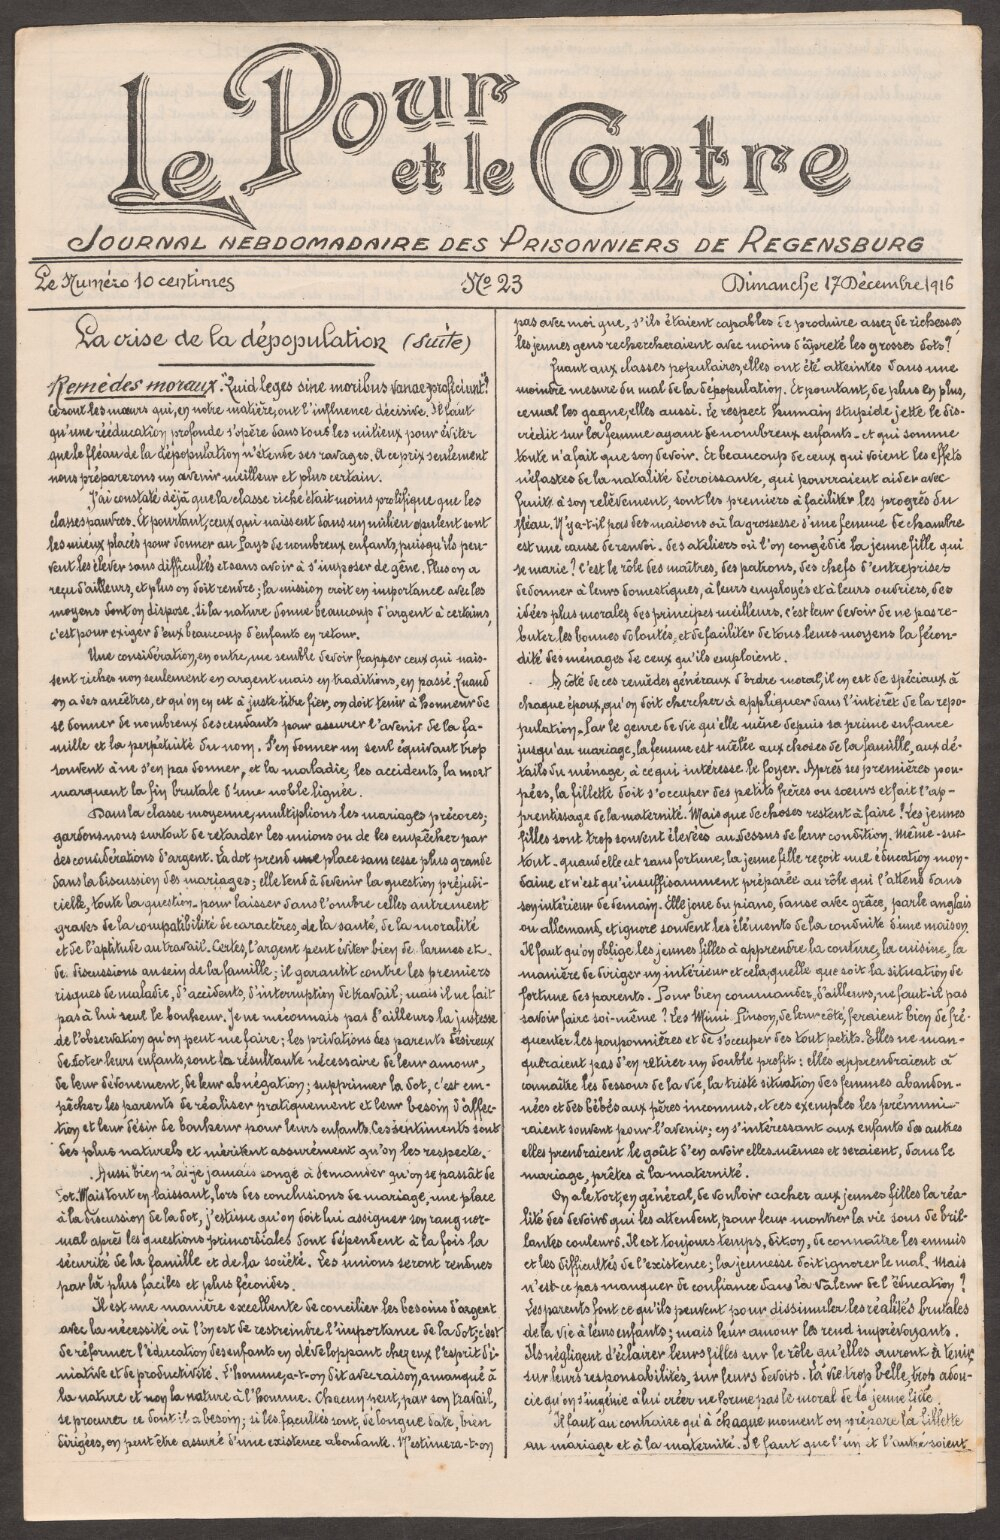 Le Pour
et le Contre
JOURNAL HEBDOMADAIRE DES PRISONNIERS DE REGENSBURG
Le Numéro 10 centimes
No 23
Dimanche 17 Décembre 1916
La crise de la dépopulation (suite)
Remèdes moraux. "Quid leges sine moribus vanae proficiunt"?
Ce sont les mœurs qui, en notre matière, ont l'influence décisive. Il faut
qu'une rééducation profonde s'opère dans tous les milieux pour éviter
que le fléau de la dépopulation n'étende ses ravages. A ce prix seulement
nous préparerons un avenir meilleur et plus certain.
J'ai constaté déjà que la classe riche était moins prolifique que les
classes pauvres. Et pourtant, ceux qui naissent dans un milieu opulent sont
les mieux placés pour donner au Pays de nombreux enfants, puisqu'ils peu-
vent les élever sans difficultés et sans avoir à s'imposer de gêne. Plus on a
reçu d'ailleurs, et plus on doit rendre; la mission croît en importance avec les
moyens dont on dispose. Si la nature donne beaucoup d'argent à certains,
c'est pour exiger d'eux beaucoup d'enfants en retour.
Une considération, en outre, me semble devoir frapper ceux qui nais-
sent riches non seulement en argent mais en traditions, en passé. Quand
on a des ancêtres, et qu'on en est à juste titre fier, on doit tenir à honneur de
se donner de nombreux descendants pour assurer l'avenir de la fa-
mille et la perpétuité du nom. S'en donner un seul équivaut trop
souvent à ne s'en pas donner, et la maladie, les accidents, la mort
marquent la fin brutale d'une noble lignée.
Dans la classe moyenne, multiplions les mariages précoces;
gardons-nous surtout de retarder les unions ou de les empêcher par
des considérations d'argent. La dot prend une place sans cesse plus grande
dans la discussion des mariages; elle tend à devenir la question préjudi-
cielle, toute la question - pour laisser dans l'ombre celles autrement
graves de la compatibilité de caractères, de la santé, de la moralité
et de l'aptitude au travail. Certes, l'argent peut éviter bien de larmes et
de discussions au sein de la famille; il garantit contre les premiers
risques de maladie, d'accidents, d'interruption de travail; mais il ne fait
pas à lui seul le bonheur. Je ne méconnais pas d'ailleurs la justesse
de l'observation qu'on peut me faire; les privations des parents désireux
de doter leurs enfants, sont la résultante nécessaire de leur amour,
de leur dévouement, de leur abnégation; supprimer la dot, c'est em-
pêcher les parents de réaliser pratiquement et leur besoin d'affec-
tion et leur désir de bonheur pour leurs enfants. Ces sentiments sont
des plus naturels et méritent assurément qu'on les respecte.
Aussi bien n'ai-je jamais songé à demander qu'on se passât de
dot. Mais tout en laissant, lors des conclusions de mariage, une place
à la discussion de la dot, j'estime qu'on doit lui assigner son rang nor-
mal après les questions primordiales dont dépendent à la fois la
sécurité de la famille et de la société. Les unions seront rendues
par là plus faciles et plus fécondes.
Il est une manière excellente de concilier les besoins d'argent
avec la nécessité où l'on est de restreindre l'importance de la dot; c'est
de réformer l'éducation des enfants en développant chez eux l'esprit d'i-
nitiative et de productivité. L'homme, a-t-on dit avec raison, a manqué à
la nature et non la nature à l'homme. Chacun peut, par son travail,
se procurer ce dont il a besoin; si les facultés sont, de longue date, bien
dirigées, on peut être assuré d'une existence abondante. N'estimera-t-on
pas avec moi que, s'ils étaient capables de produire assez de richesses,
les jeunes gens rechercheraient avec moins d'âpreté les grosses dots?
Quant aux classes populaires, elles ont été atteintes dans une
moindre mesure du mal de la dépopulation. Et pourtant, de plus en plus,
ce mal les gagne, elles aussi. Le respect humain stupide jette le dis-
crédit sur la femme ayant de nombreux enfants - et qui somme
toute n'a fait que son devoir. Et beaucoup de ceux qui voient les effets
néfastes de la natalité décroissante, qui pourraient aider avec
fruit à son relèvement, sont les premiers à faciliter les progrès du
fléau. N'y a-t-il pas des maisons où la grossesse d'une femme de chambre
est une cause de renvoi - des ateliers où l'on congédie la jeune fille qui
se marie? C'est le rôle des maîtres, des patrons, des chefs d'entreprises
de donner à leurs domestiques, à leurs employés et à leurs ouvriers, des
idées plus morales, des principes meilleurs. C'est leur devoir de ne pas re-
buter les bonnes volontés, et de faciliter de tous leurs moyens la fécon-
dité des ménages de ceux qu'ils emploient.
A côté de ces remèdes généraux d'ordre moral, il en est de spéciaux à
chaque époux, qu'on doit chercher à appliquer dans l'intérêt de la repo-
pulation. Par le genre de vie qu'elle mène depuis sa prime enfance
jusqu'au mariage, la femme est mêlée aux choses de la famille, aux dé-
tails du ménage, à ce qui intéresse le foyer. Après ses premières pou-
pées, la fillette doit s'occuper des petits frères ou sœurs et fait l'ap-
prentissage de la maternité. Mais que de choses restent à faire! Les jeunes
filles sont trop souvent élevées au-dessus de leur condition. Même - sur-
tout - quand elle est sans fortune, la jeune fille reçoit une éducation mon-
daine et n'est qu'insuffisamment préparée au rôle qui l'attend dans
son intérieur de demain. Elle joue du piano, danse avec grâce, parle anglais
ou allemand, et ignore souvent les éléments de la conduite d'une maison.
Il faut qu'on oblige les jeunes filles à apprendre la couture, la cuisine, la
manière de diriger un intérieur et cela, quelle que soit la situation de
fortune des parents. Pour bien commander, d'ailleurs, ne faut-il pas
savoir faire soi-même? Les Mimi Pinson, de leur côté, feraient bien de fré-
quenter les pouponnières et de s'occuper des tout petits. Elles ne man-
queraient pas d'en retirer un double profit: elles apprendraient à
connaître les dessous de la vie, la triste situation des femmes abandon-
nées et des bébés aux pères inconnus, et ces exemples les prémuni-
raient souvent pour l'avenir; en s'intéressant aux enfants des autres
elles prendraient le goût d'en avoir elles-mêmes et seraient, dans le
mariage, prêtes à la maternité.
On a le tort, en général, de vouloir cacher aux jeunes filles la réa-
lité des devoirs qui les attendent, pour leur montrer la vie sous de bril-
lantes couleurs. Il est toujours temps, dit-on, de connaître les ennuis
et les difficultés de l'existence; la jeunesse doit ignorer le mal. Mais
n'est-ce pas manquer de confiance dans la valeur de l'éducation?
Les parents font ce qu'ils peuvent pour dissimuler les réalités brutales
de la vie à leurs enfants; mais leur amour les rend imprévoyants.
Ils négligent d'éclairer leurs filles sur le rôle qu'elles auront à tenir
sur leurs responsabilités, sur leurs devoirs. La vie trop belle, trop adou-
cie qu'on s'ingénie à lui créer ne forme pas le moral de la jeune fille.
Il faut au contraire qu'à chaque moment on prépare la fillette
au mariage et à la maternité. Il faut que l'un et l'autre soient